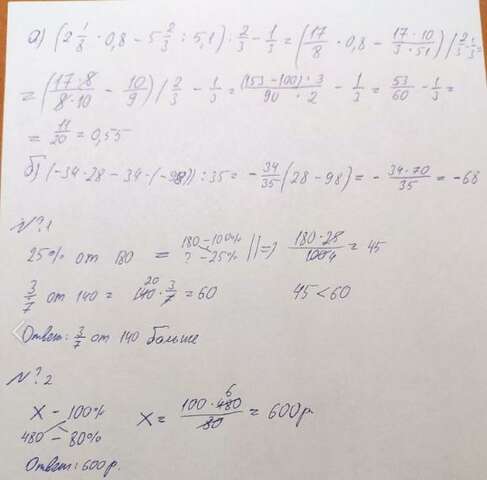 а) (2 1/8 · 0,8 - 5 2/3 : 5,1) : 2/3 - 1/3 = (17/8 · 0,8 - 17·10/3·51) / 2/3 - 1/3 =
= (17·8/8·10 - 10/9) / 2/3 - 1/3 = (153-100)·3/90·2 - 1/3 = 53/60 - 1/3 =
= 11/20 = 0,55
б) (-34·28 - 34·(-98)) : 35 = - 34/35 (28 - 98) = - 34·70/35 = -68
№?1
25% от 180 = 180 - 100% ? - 25% || => 180·28/1004 = 45
3/7 от 140 = 20 140 · 3/7 = 60 45 < 60
Ответ: 3/7 от 140 больше
№?2
X - 100% X = 100·480/80 6 = 600р.
480 - 80%
Ответ: 600р.